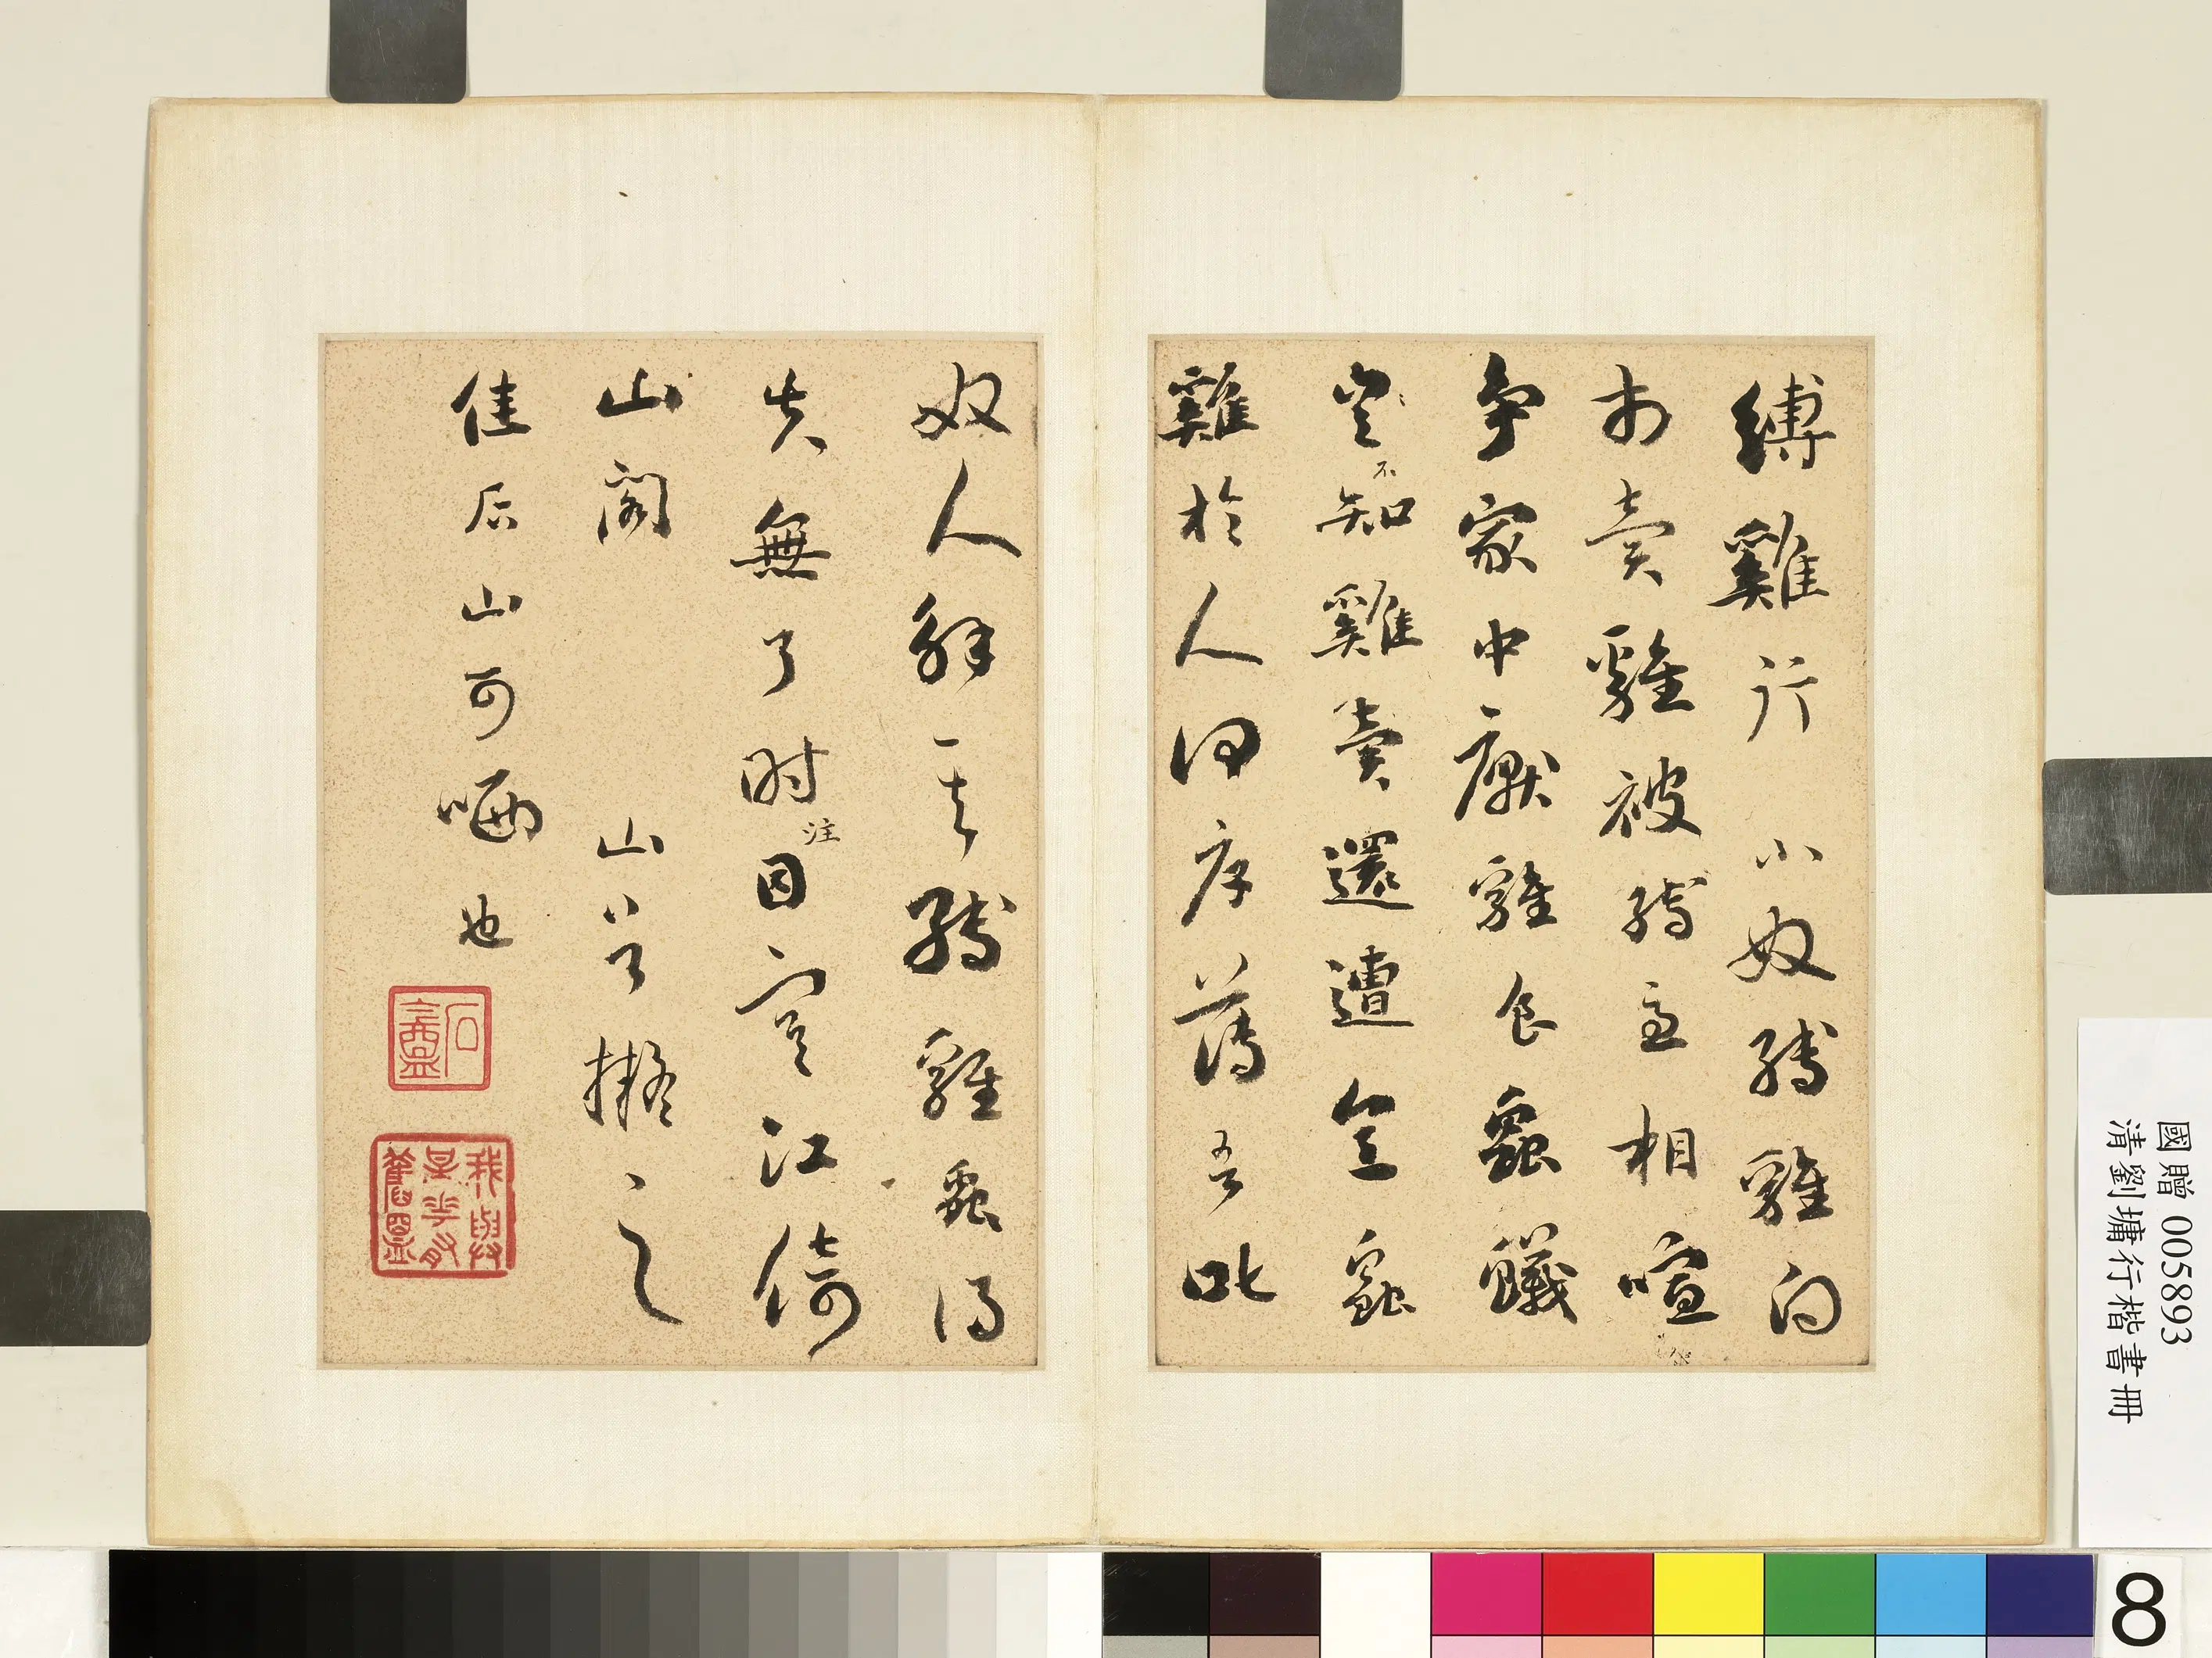 縛雞行 小奴縛雞向
市賣雞被縛急相喧
爭家中厭雞食蟲蟻
豈不知雞賣還遭烹蟲
雞於人何厚薄吾叱
奴人解其縛雞蟲得
失無了時注目寒江倚
山閣 山谷擬之
佳后山可哂也
石盦
國贈 005893
清劉墉行楷書冊
8